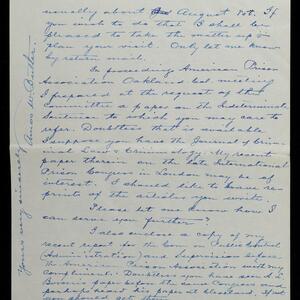 usually about August 1st. If
you wish to do that I shall be
pleased to take the matter up &
plan your visit. Only let me know
by return mail.
In proceedings American Prison
Association, Oakland meeting
I prepared at the request of the
committee a paper on the Indeterminate
Sentence to which you may care to
refer. Doubtless that is available.
I suppose you have the Journal of Crimi-
nal Law & Criminology. My recent
paper therein on the late International
Prison Congress in London may be of
interest. I should like to have re-
prints of the articles you write.
Please let me know how I
can serve you further?
I also enclose a copy of my
recent report for the Com on Public
Administration and Supervision before
the American Prison Association with my
compliments. Doubtless you have also
paper before the same congress and
you should get them.
Yours very sincerely Amos W. Butler.